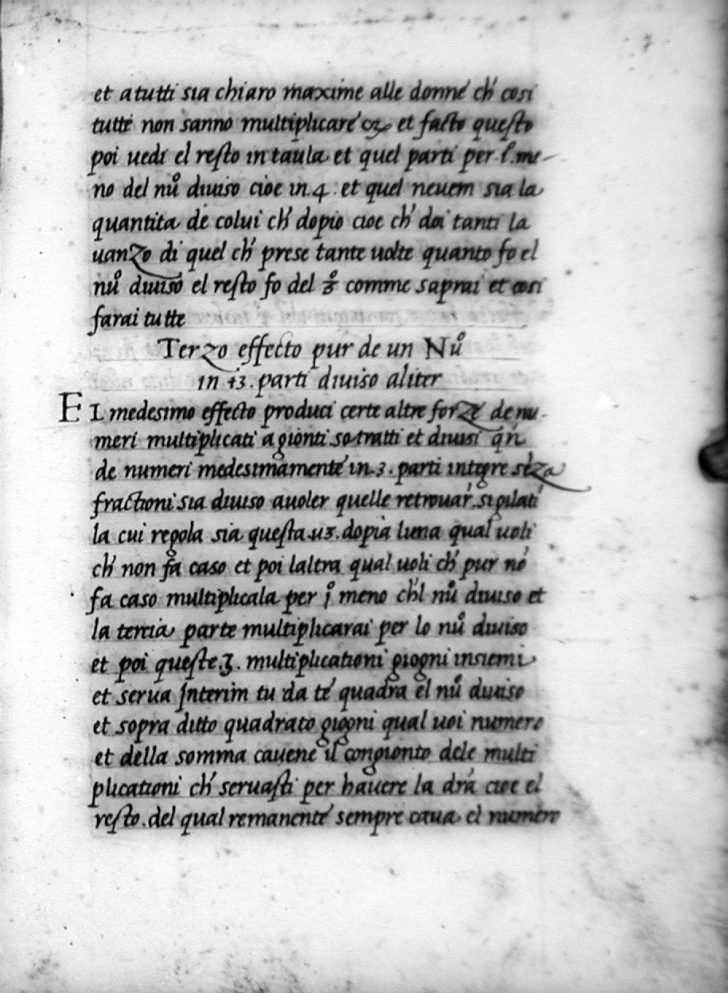 et a tutti sia chiaro maxime alle donne ch' cosi
tutte non sanno multiplicare et facto questo
poi uedi el resto in taula et quel parti per 1. me-
no del nů diuiso cioe in 4. et quel neuem sia la
quantita de colui ch' dopio cioe ch' doi tanti la
uanzo di quel ch' prese tante uolte quanto fo el
nů diuiso el resto fo del 3º comme saprai et cosi
farai tutte
Terzo effecto pur de un Nů
in 3. parti diuiso aliter
EL medesimo effecto produci certe altre forze de nu-
meri multiplicati agionti sotratti et diuisi qñ
de numeri medesimamente in .3. parti integre sēza
fractioni sia diuiso a uoler quelle retrouar' sigilati
la cui regola sia questa uȝ. dopia luna qual uoli
ch' non fa caso et poi laltra qual uoli ch' pur nō
fa caso multiplicala per iº meno ch'l nů diuiso et
la tercia parte multiplicarai per lo nů diuiso
et poi queste .3. multiplicationi giogni insiemi
et serua Interim tu da te quadra el nů diuiso
et sopra ditto quadrato giogni qual uoi numero
et della somma cauene il congionto dele multi
plicationi ch' seruasti per hauere la drā cioe el
resto. del qual remanente sempre caua el numero